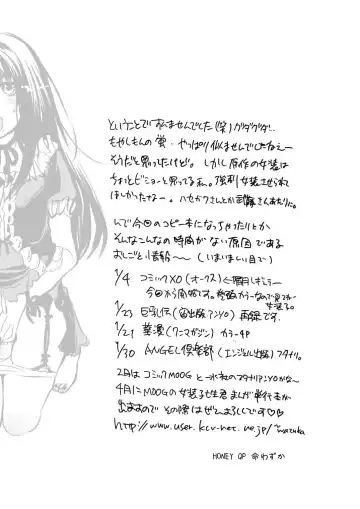 ということで似ませんでした(笑)グダグダ…
もやしもんの蛍…やっぱり似ませんでしたねぇー
そうだと思ったけど。しかし原作の女装は
ちょっとビミョーと思ってる私。強制女装させられて
ほしかったなー。ハセガワさんとか武藤さんあたりに。
んで今回のコピー本になっちゃったりとか
そんなこんなの時間がない原因である
おしごと情報〜〜(いまいましい目で)
1/4 コミックXO(オークス)
今回から
1/23 巨乳伝(富士出版アンソロ)再録です。
1/21 華漫(ワニマガジン)カラー4P
1/30 ANGEL倶楽部(エンジェル出版)フタナリ。
2月はコミックMOOGと
4月にMOOGの女装子さまんが単行本が
出ますのでその際はぜひよろしくです♡♡
http://www.user.kcv-net.ne.jp/~wazuka
HONEY QP 命わずか